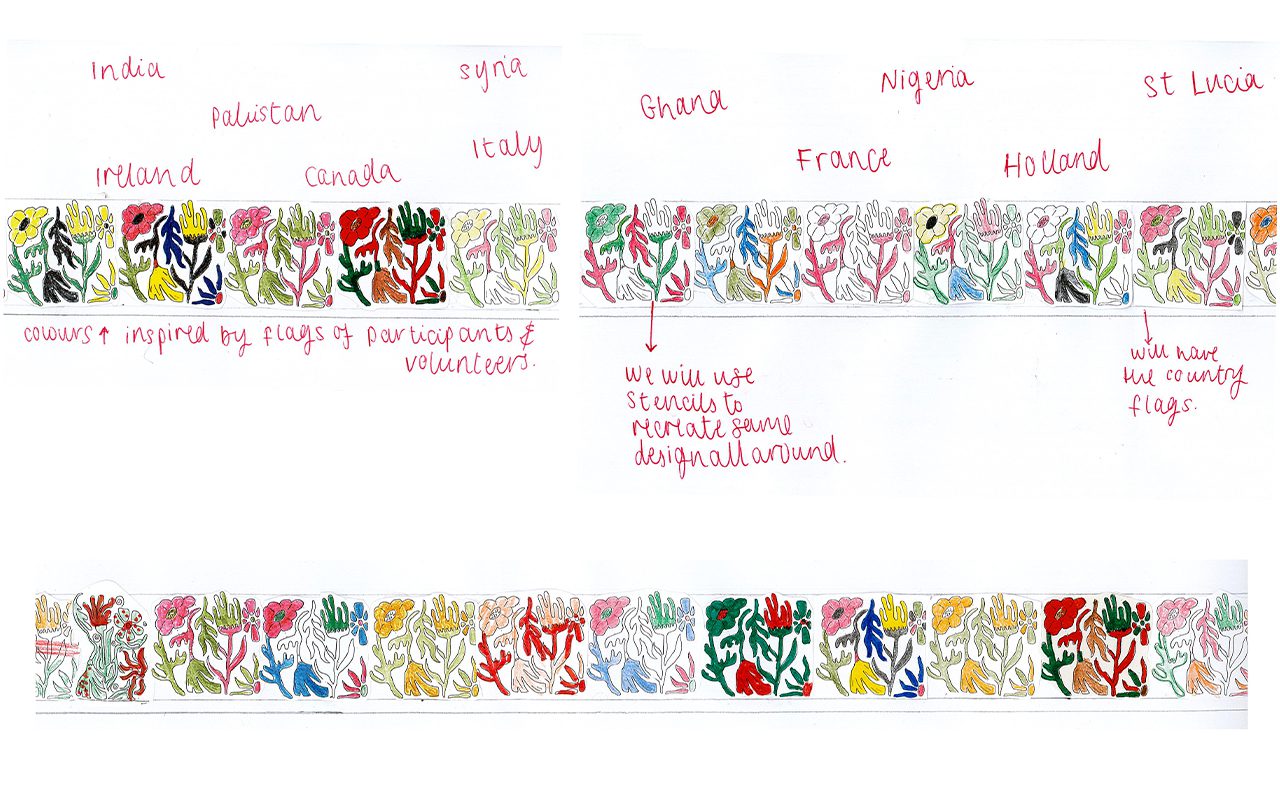 India
Syria
Pakistan
Italy
Ireland
Canada
Ghana
Nigeria
St Lucia
France
Holland
colours ↑ inspired by flags of participants &
volunteers.
we will use
stencils to
recreate same
design all around.
will have
the country
flags.